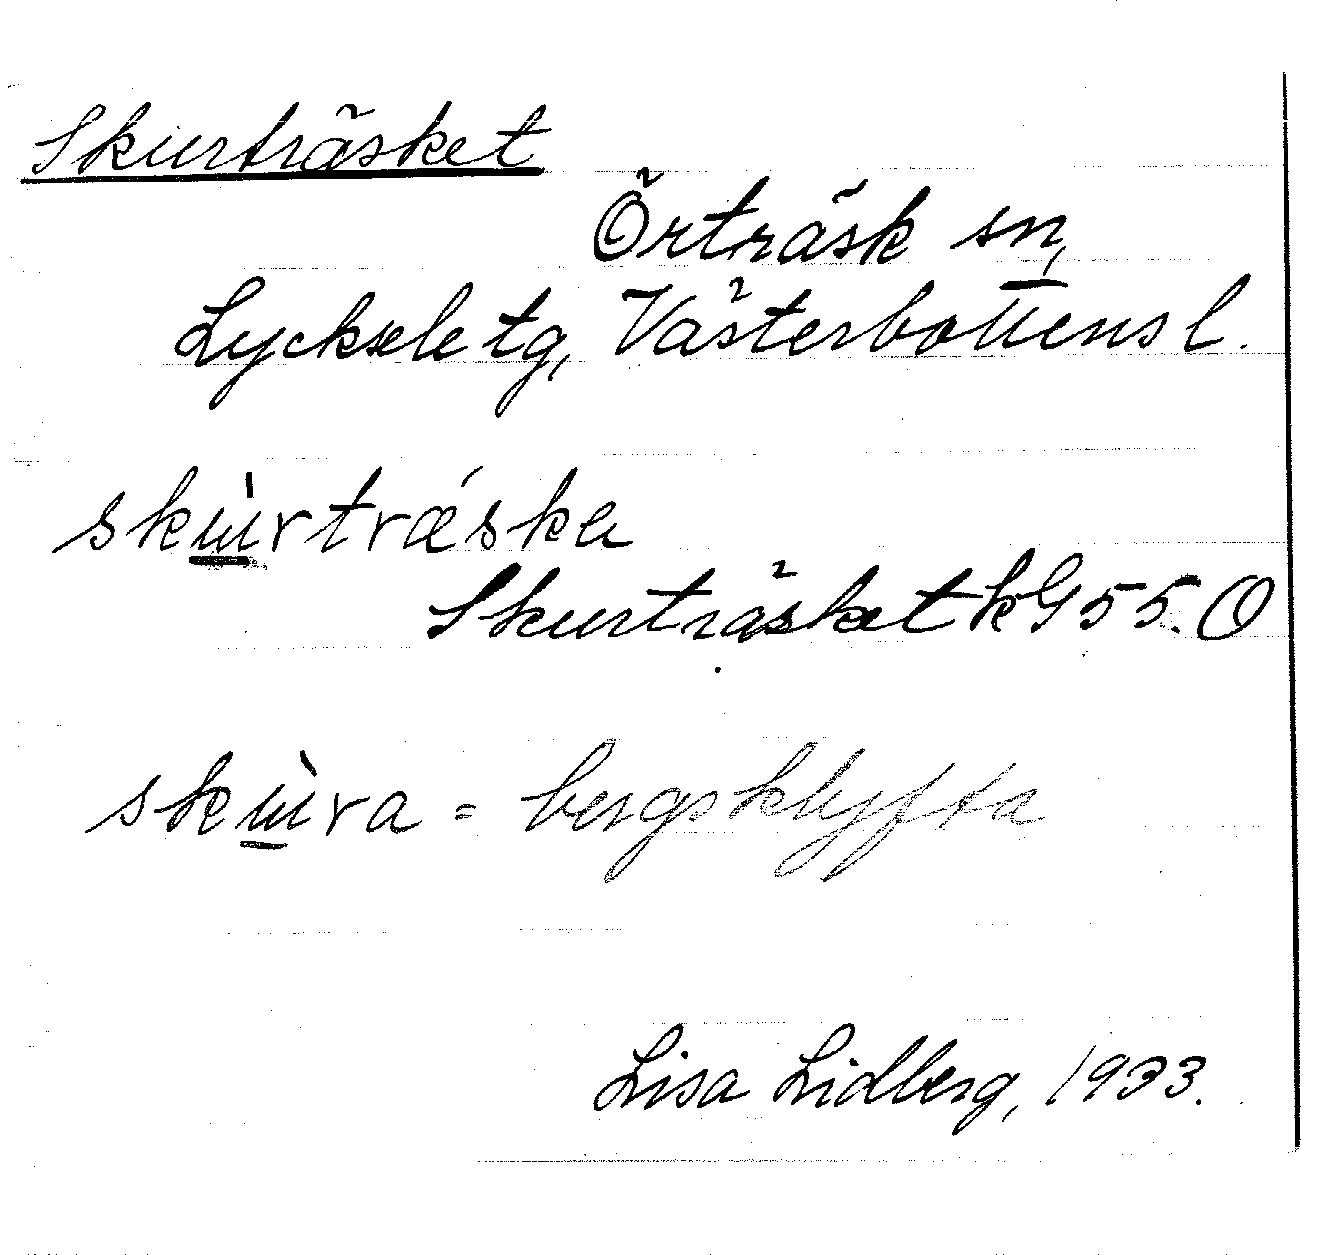 Skurträsket
Örträsk sn,
Lycksele tg, Västerbottens l.
skɯ̀rtræ´ska
Skurträsket k G 55. O
skɯ̀ra = bergsklyfta
Lisa Lidberg, 1933.